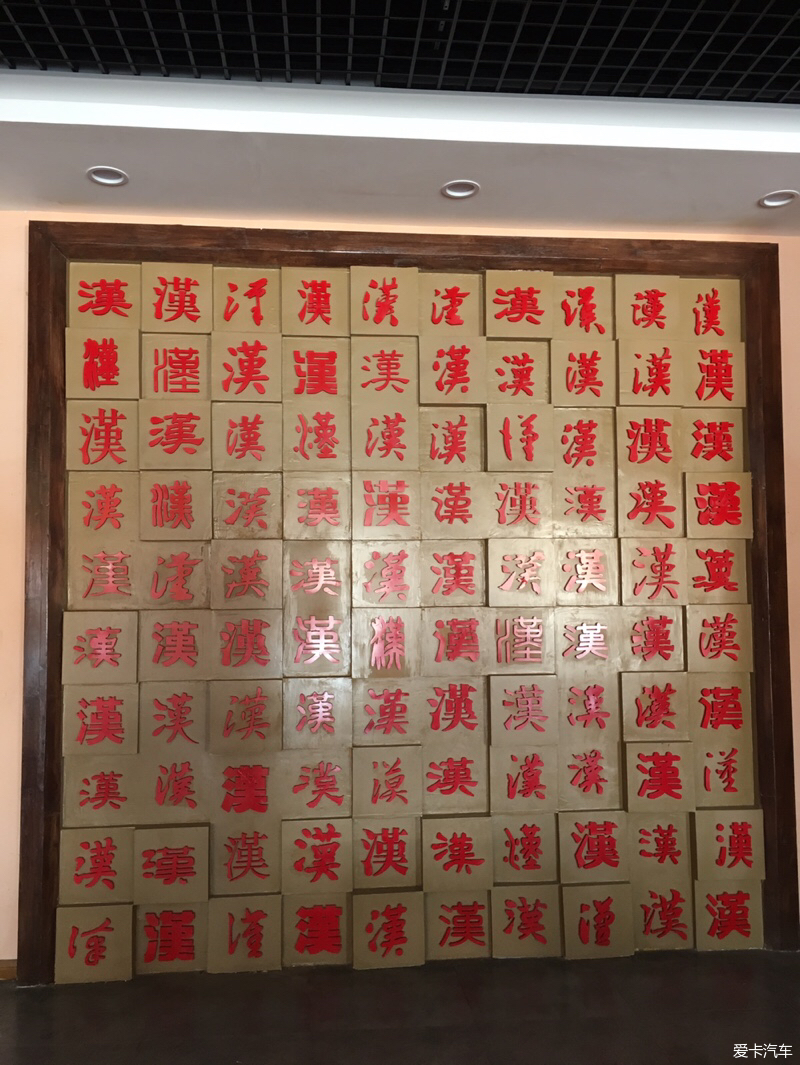 漢漢漢漢漢漢漢漢漢漢
漢漢漢漢漢漢漢漢漢漢
漢漢漢漢漢漢漢漢漢漢
漢漢漢漢漢漢漢漢漢漢
漢漢漢漢漢漢漢漢漢漢
漢漢漢漢漢漢漢漢漢漢
漢漢漢漢漢漢漢漢漢漢
漢漢漢漢漢漢漢漢漢漢
漢漢漢漢漢漢漢漢漢漢
漢漢漢漢漢漢漢漢漢漢
爱卡汽车